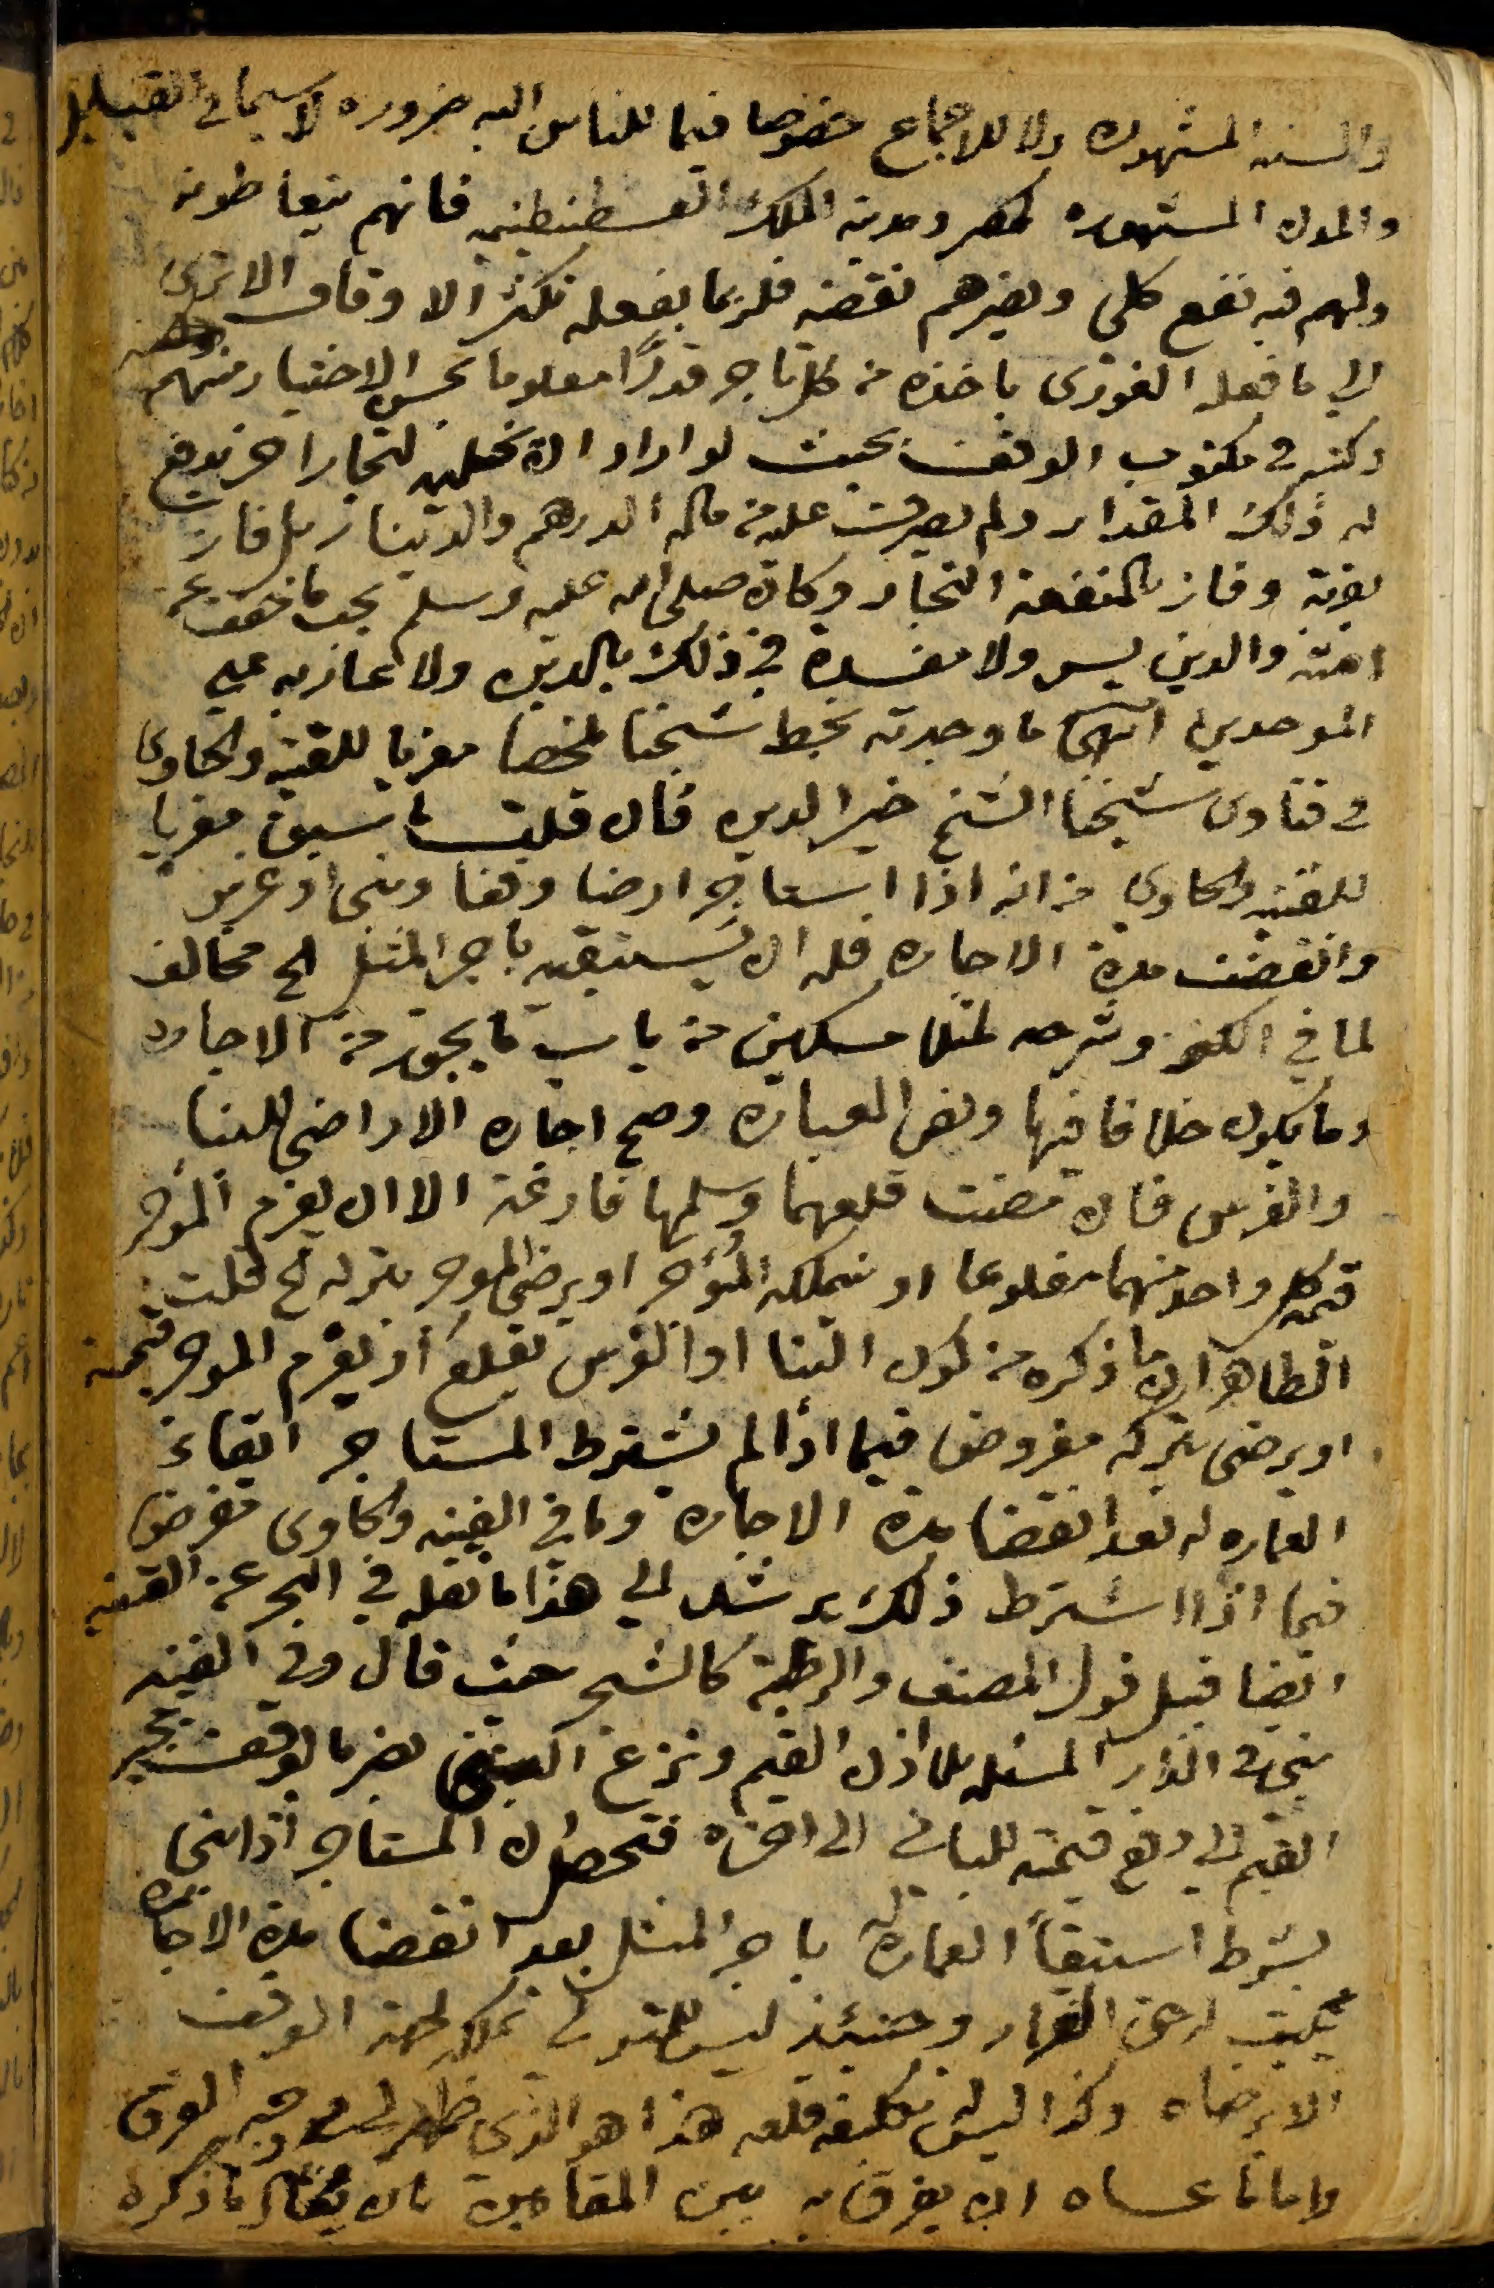 والسنه المشهوره ولا للاجماع خصوصا فيما للناس اليه ضروره لا سيما في
والمدن المشهوره كمصر ومدينة الملك القسطنطينيه فانهم يتعاطونه
ولهم فيه نفع كلي ويضرهم نقضه فلربما بفعله تكثر الاوقاف الا ترى
الي ما فعله الغوري باخذه من كل تاجر قدرًا معلوما بحسب الاختيار منهم
وكتبه في مكتوب الوقف بحيث لو اراد ان يخليه لتجار اخر يدفع
له ذلك المقدار ولم يصرف عليه من ماله الدرهم والدينار بل فاز
بقربة وفاز بالمنفعة التجار وكان صلى الله عليه وسلم يحب ما خفف عن
امته والدين يسر ولا مفسدة في ذلك بالدين ولا عار به علي
الموحدين انتهى ما وجدته بخط شيخنا ملخصا معزيا للقنيه والحاوي
في فتاوى شيخنا الشيخ خير الدين قال قلت ما سبق معزيا
للقنيه والحاوي من انه اذا استاجر ارضا وقفا وبنى او غرس
وانقضت مدة الاجاره فله ان يستبقيه باجر المثل الخ مخالف
لما في الكنز وشرحه لمنلا مسكين من باب ما يجوز من الاجاره
وما يكون خلافا فيها ونص العبارة وصح اجاره الاراضي للبنا
والغرس فان مضت قلعهما وسلمها فارغة الا ان يغرم المؤجر
قيمة كل واحد منهما مقلوعا او يتملكه المؤجر او يرضى الموجر بتركه الخ قلت
الظاهر ان ما ذكره من كون البنا او الغرس يقلع أو يغرم الموجر قيمة
او يرضى بتركه مفروض فيما اذا لم يشترط المستاجر ابقاء
العماره له بعد انقضا مدة الاجارة وما في القنيه والحاوى مفرض
فيما اذا اشترط ذلك يرشد الي هذا ما نقله في البحر عن القنيه
ايضا قبيل قول المصنف والرطبة كالشجر حيث قال وفي القنيه
بنى في الدار المسبله بلا اذن القيم ونزع البنا يضر بالوقف يجبر
القيم الي دفع قيمته للباني الى اخره فتحصل ان المستاجر اذا بنى
بشرط استبقأ العمارة له باجر المثل بعد انقضا مدة الاجاره
يثبت له حق القرار وحينئذ ليس للمتولي تملكه لجهة الوقف
الا برضاه وكذا ليس له تكليفه قلعه هذا هو الذي ظهر لي في وجه الفرق
واما ما عساه ان يفرق به بين المقامين بان يقال ما ذكره